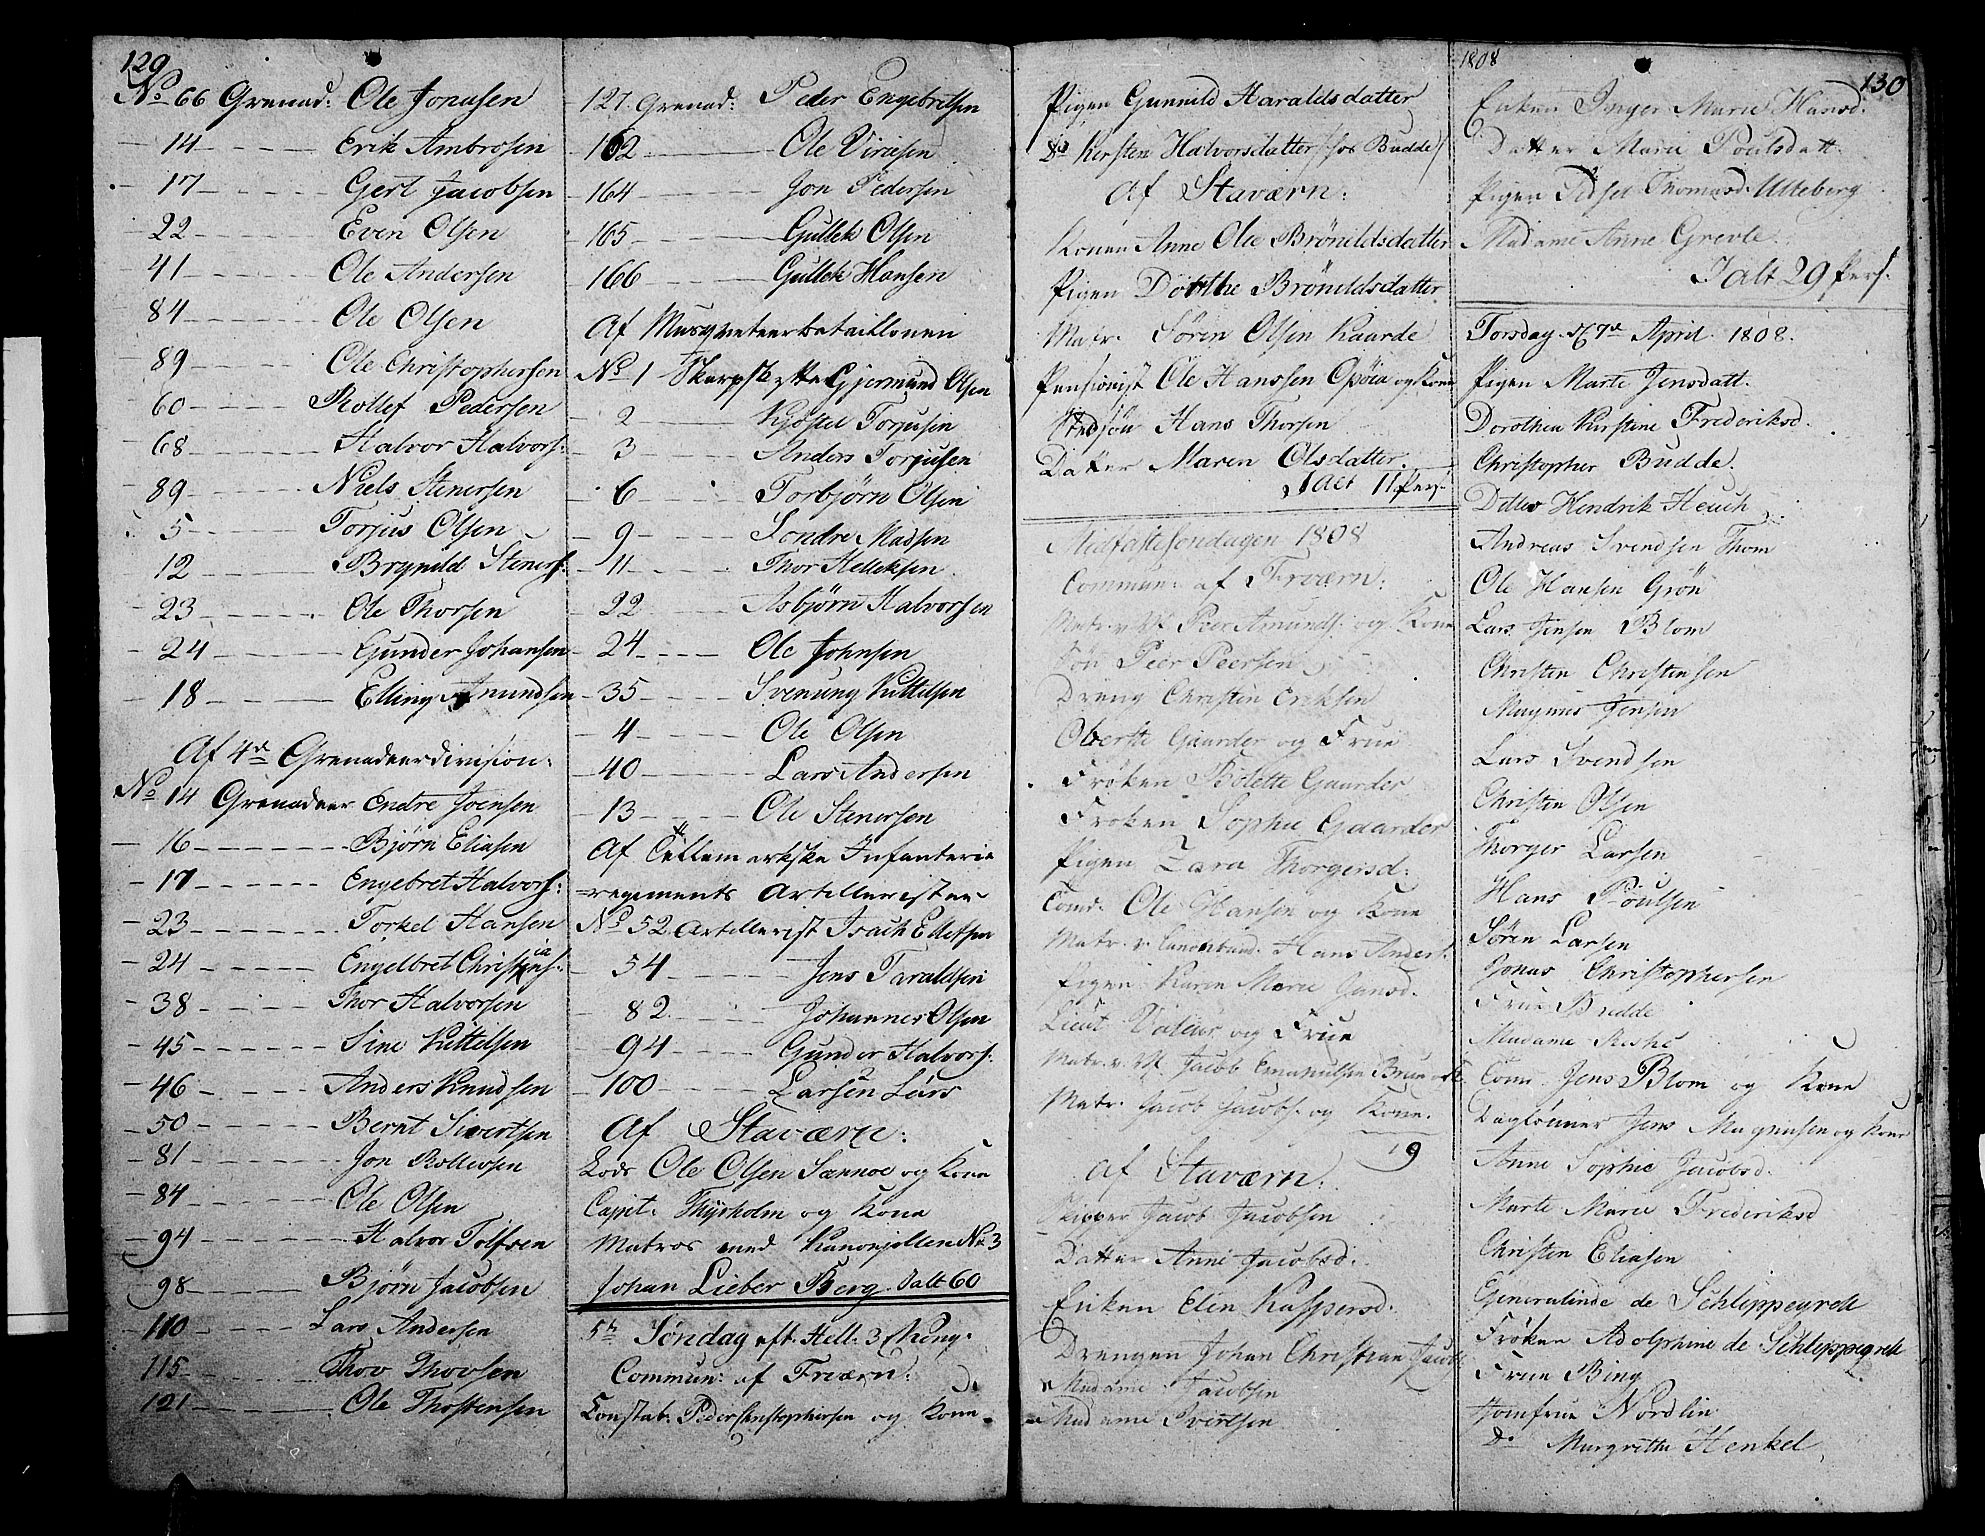 129
No 66 Grenad: Ole Jonasen
14 Erik Ambrosen
17 Gert Jacobsen
22 Even Olsen
41 Ole Andersen
84 Ole Olsen
89 Ole Christophersen
60 Rollef Pedersen
68 Halvor Halvors:
89 Niels Stenersen
5 Torjus Olsen
12 Brynild Steners:
23 Ole Thorsen
24 Gunder Johansen
18 Elling Amundsen
Af 4de Grenadeerdivision:
No 14 Grenadeer Endre Joensen
16 Bjørn Eliasen
17 Engebret Halvors:
23 Torkel Hansen
24 Engelbret
38 Thor Halvorsen
45 Sine Kittelsen
46 Anders Knudsen
50 Bernt Sivertsen
81 Jon Rollevsen
84 Ole Olsen
94 Halvor Tolfsen
98 Bjørn Jacobsen
110 Lars Andersen
115 Thov Thovsen
121 Ole Thostensen
127 Grenad: Peder Engebretsen
162 Ole
164 Jon Pedersen
165 Gullek Olsen
166 Gullek Hansen
Af Musqveteerbataillonen
No 1 Skarpskytte Gjermund Olsen
2 Kjøstel Torjusen
3 Anders Torjusen
6 Torbjørn Olsen
9 Sondre Madsen
11 Thor Helleksen
22 Asbjørn Halvorsen
24 Ole Johnsen
35 Svenung Kittelsen
4 Ole Olsen
40 Lars Andersen
13 Ole Stenersen
Af Tellemarkske Infanterie
=regiments Artillerister
No 52 Artillerist Isach Ellefsen
54 Jens Taraldsen
82 Johannes Olsen
94 Gunder Halvors:
100 Larsen Lars
Af Staværn:
Lods Ole Olsen Sannoe og Kone
Capit: Thyrholm og Kone
Matros med Kanonjollen No 3
Johan Lieber Berg. Ialt 60
Søndag eft. Hell: 3 Kong:
Commun: af Frværn:
Constab: Peder Christophersen og Kone
Pigen Gunnild Haraldsdatter
Kersten Halvorsdatter (hos Budde)
Af Staværn:
Konen Anne Olea Brønildsdatter
Pigen Dorthe Brønildsdatter
Matr: Søren Olsen Kaarde
Pensionist Ole Hanssen Opøia og Kone
Stedsøn Hans Thorsen
Datter Maren Olsdatter.
Ialt 11 Pers.
Midfastesøndagen 1808
Commun: af Frværn:
Matr. Peer Amunds: og Kone
Søn Peer Peersen
Dreng Christen Eriksen
Oberste Gaarder og Frue
Frøken Bolette Gaarder
Frøken Sophie Gaarder
Pigen Zara Thorgersd:
Comd: Ole Hansen og Kone
Matr. v. Hans Anders:
Pigen Karen Marie Hansd.
Lieut Valeur og Frue
Matr. v. Jacob Emanuelsen Bruun
Matr: Jacob Jacobs: og Kone.
19
Af Staværn:
Skipper Jacob Jacobsen
Datter Anne Jacobsd:
Enken Elen Kaspersd:
Drengen Johan Christian Jacobs:
Madame Jacobsen
Madame Ivertsen
1808
130
Enken Inger Marie Hansd.
Datter Marie Poulsdatt:
Pigen Sidsel Thomasd: Ulleberg
Madame Anne Greve
I alt 29 Pers.
Torsdag d 7de April 1808.
Pigen Marte Jensdatt.
Dorothea Kirstine Frederiksd.
Christopher Budde.
Ditlev Hendrik Heuch
Andreas Svendsen Thom
Ole Hansen Grøn
Lars Jensen Blom
Christen Christensen
Magnus Jensen
Lars Svendsen
Christen Olsen
Thorger Larsen
Hans Poulsen
Søren Larsen
Jonas Christophersen
Frue Budde
Madame Riske
Com. Jens Blom og Kone
Daglønner Jens Magnusen og Kone
Anne Sophie Jacobsd.
Marte Marie Frederiksd
Christen Eliasen
Generalinde de Schleppegrell
Frøken Adolphine de Schleppegrell
Frue Bing
Jomfrue Nordlin
Do Margrethe Henkel